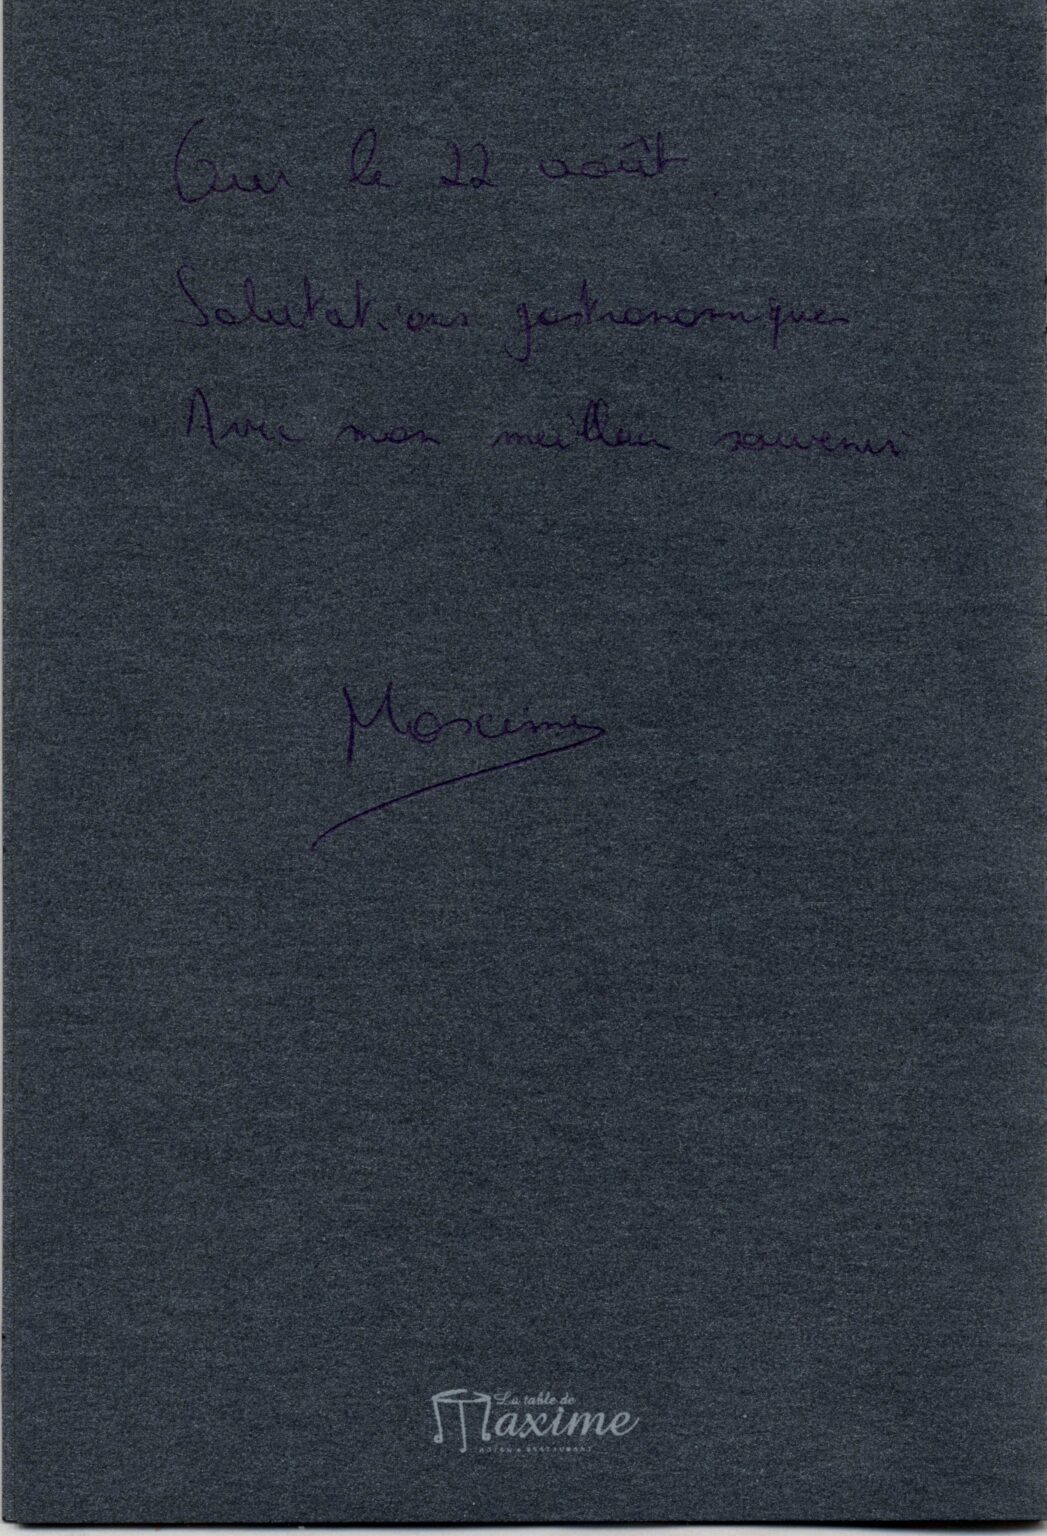 Our le 22 août.
Salutations gastronomiques
Avec mon meilleur souvenir
Maxime
La table de
Maxime
HÔTEL & RESTAURANT